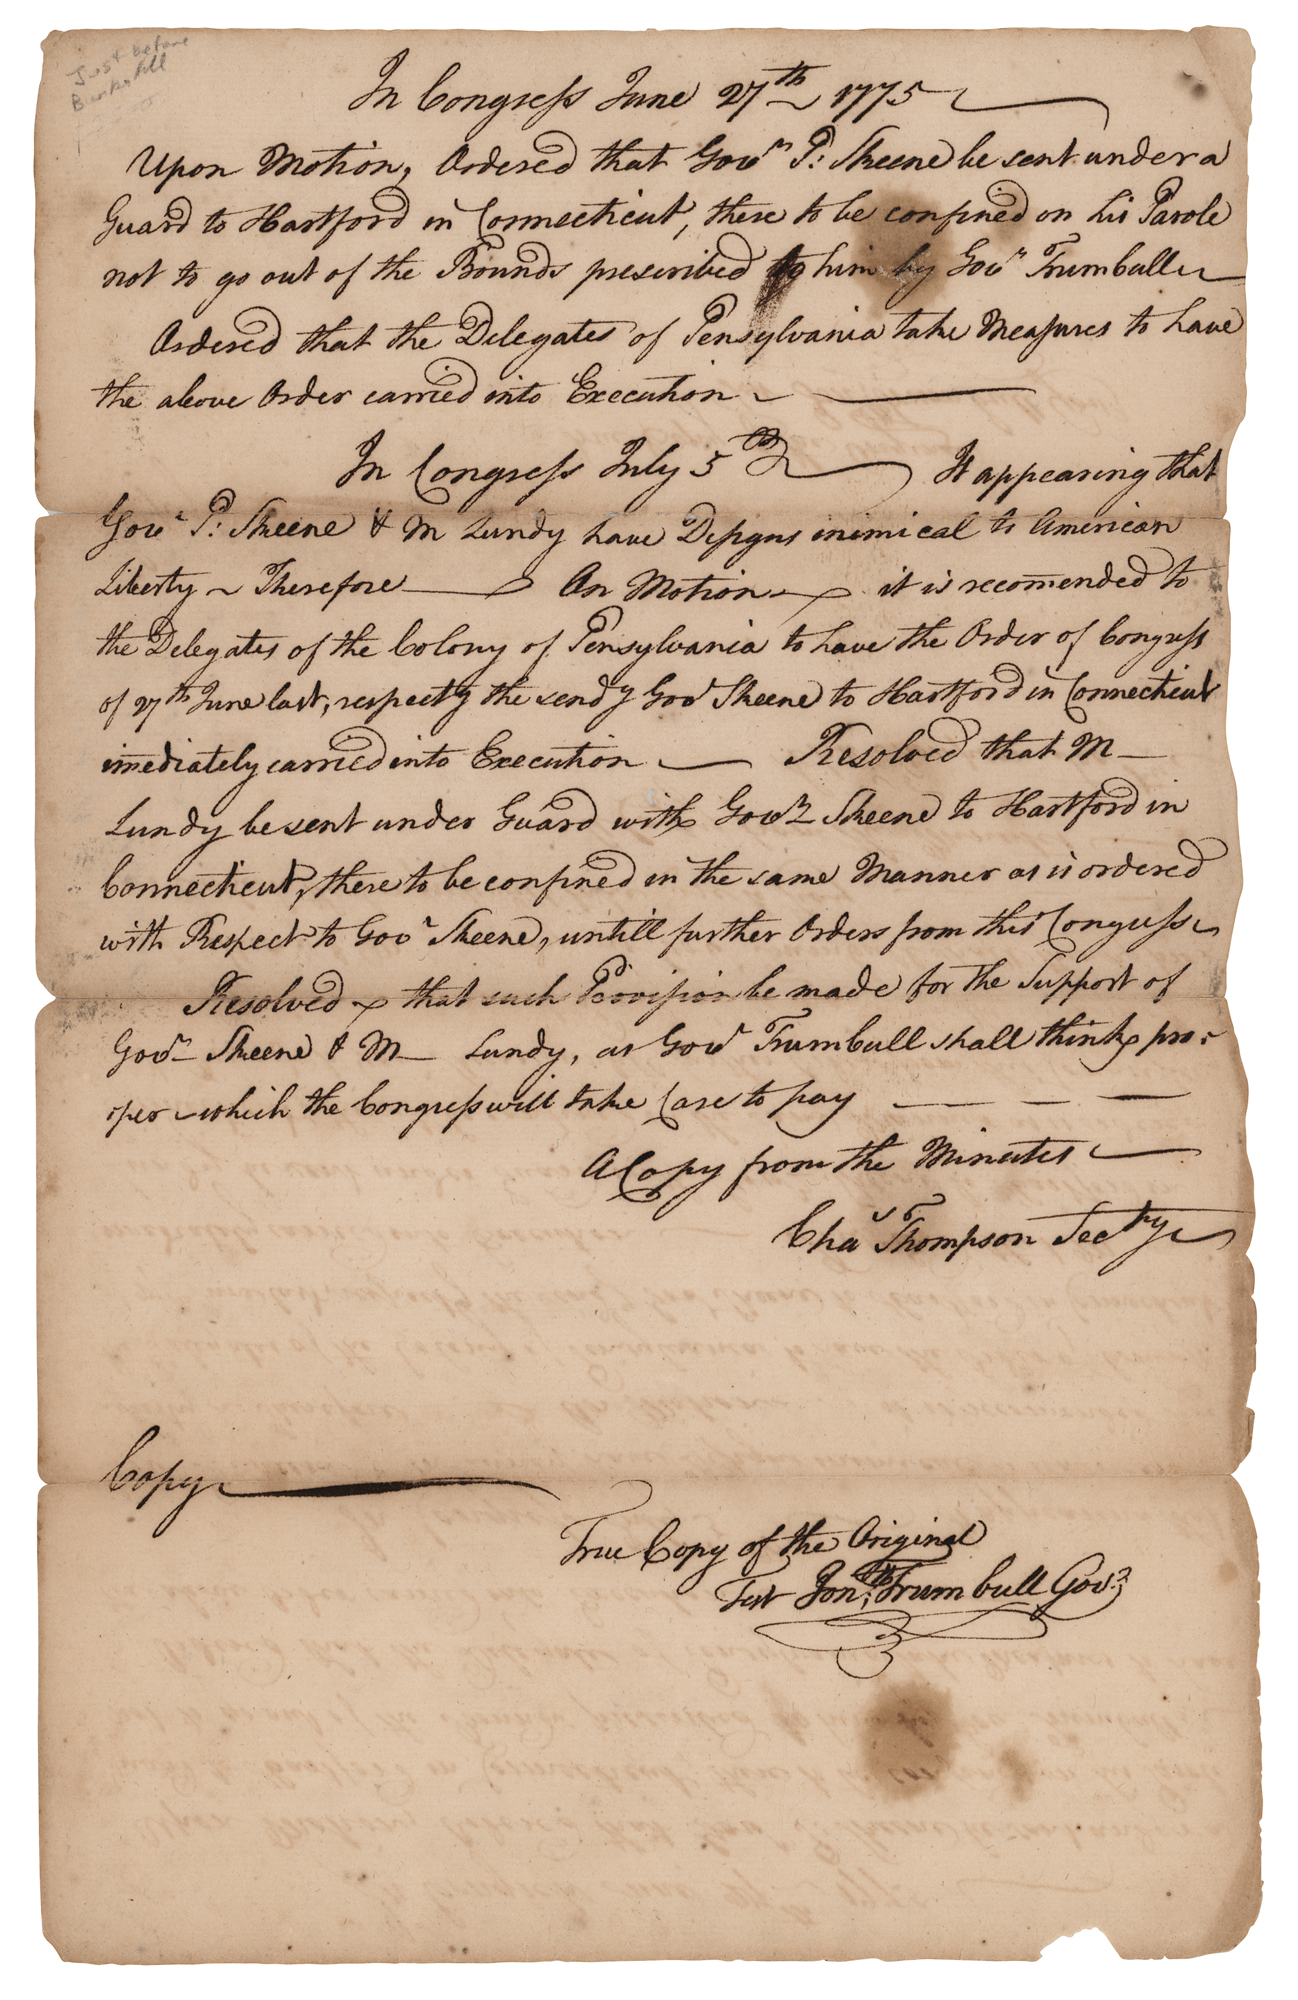 Just before
Bunker hill
In Congress June 27th 1775
Upon Motion, Ordered that Govr P: Skeene be sent under a
Guard to Hartford in Connecticut, there to be confined on his Parole
not to go out of the Bounds prescribed to him by Govr Trumbull
Ordered that the Delegates of Pensylvania take Measures to have
the above Order carried into Execution
In Congress July 5th It appearing that
Govr P: Skeene & M Lundy have Designs inimical to American
Liberty ~ Therefore — On Motion — it is recomended to
the Delegates of the Colony of Pensylvania to have the Order of Congress
of 27th June last, respectg the sendg Govr Skeene to Hartford in Connecticut
immediately carried into Execution — Resolved that M —
Lundy be sent under Guard with Govr Skeene to Hartford in
Connecticut, there to be confined in the same Manner as is ordered
with Respect to Govr Skeene, untill further Orders from this Congress
Resolved that such Provision be made for the Support of
Govr Skeene & M — Lundy, as Govr Trumbull shall think pro-
oper which the Congress will take Care to pay — — —
A Copy from the Minutes —
Chas Thompson Secty
Copy
True Copy of the Original
Test Jonth Trumbull Govr